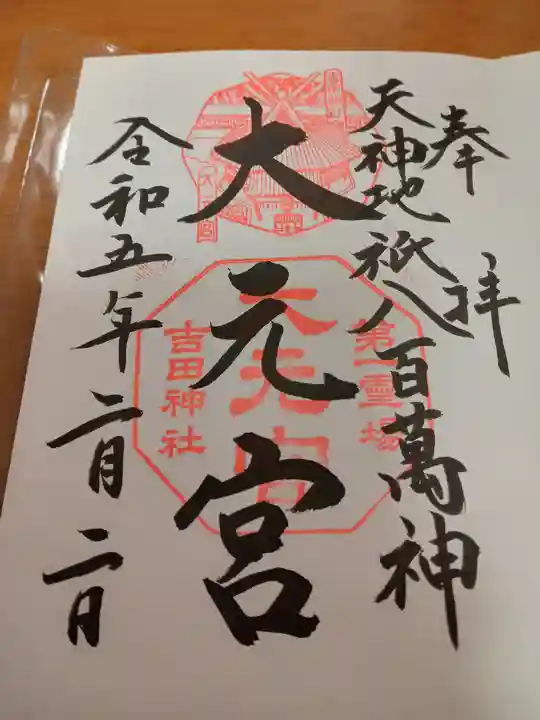 奉拝
天神地祇八百萬神
大元宮
令和五年二月二日
第一霊場
大元宮
吉田神社